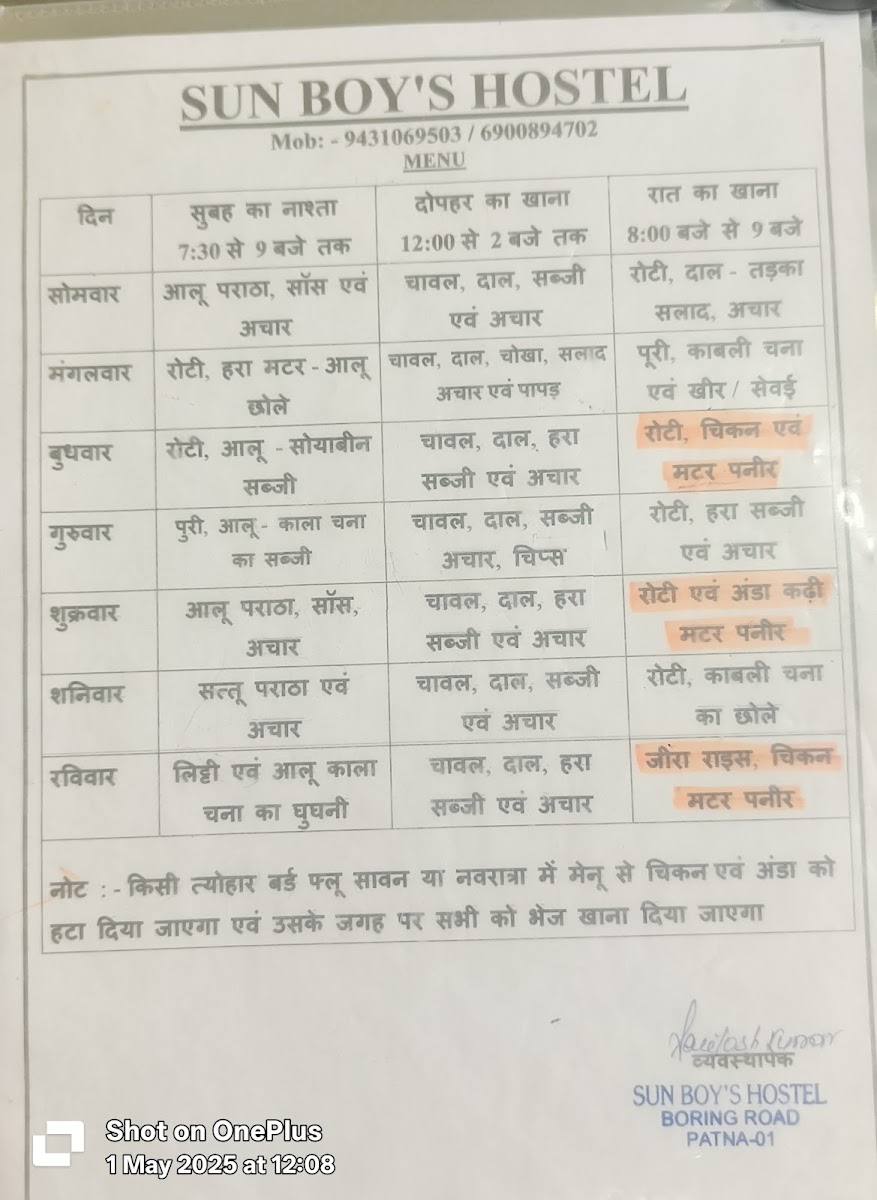 SUN BOY'S HOSTEL
Mob: - 9431069503 / 6900894702
MENU
दिन
सुबह का नाश्ता
7:30 से 9 बजे तक
दोपहर का खाना
12:00 से 2 बजे तक
रात का खाना
8:00 बजे से 9 बजे
सोमवार
आलू पराठा, सॉस एवं
अचार
चावल, दाल, सब्जी
एवं अचार
रोटी, दाल - तड़का
सलाद, अचार
मंगलवार
रोटी, हरा मटर - आलू
छोले
चावल, दाल, चोखा, सलाद
अचार एवं पापड़
पूरी, काबली चना
एवं खीर / सेवई
बुधवार
रोटी, आलू - सोयाबीन
सब्जी
चावल, दाल, हरा
सब्जी एवं अचार
रोटी, चिकन एवं
मटर पनीर
गुरुवार
पुरी, आलू - काला चना
का सब्जी
चावल, दाल, सब्जी
अचार, चिप्स
रोटी, हरा सब्जी
एवं अचार
शुक्रवार
आलू पराठा, सॉस,
अचार
चावल, दाल, हरा
सब्जी एवं अचार
रोटी एवं अंडा कढ़ी
मटर पनीर
शनिवार
सत्तू पराठा एवं
अचार
चावल, दाल, सब्जी
एवं अचार
रोटी, काबली चना
का छोले
रविवार
लिट्टी एवं आलू काला
चना का घुघनी
चावल, दाल, हरा
सब्जी एवं अचार
जीरा राइस, चिकन
मटर पनीर
नोट : - किसी त्योहार बर्ड फ्लू सावन या नवरात्रा में मेनू से चिकन एवं अंडा को
हटा दिया जाएगा एवं उसके जगह पर सभी को भेज खाना दिया जाएगा
Kumar
व्यवस्थापक
SUN BOY'S HOSTEL
BORING ROAD
PATNA-01
Shot on OnePlus
1 May 2025 at 12:08